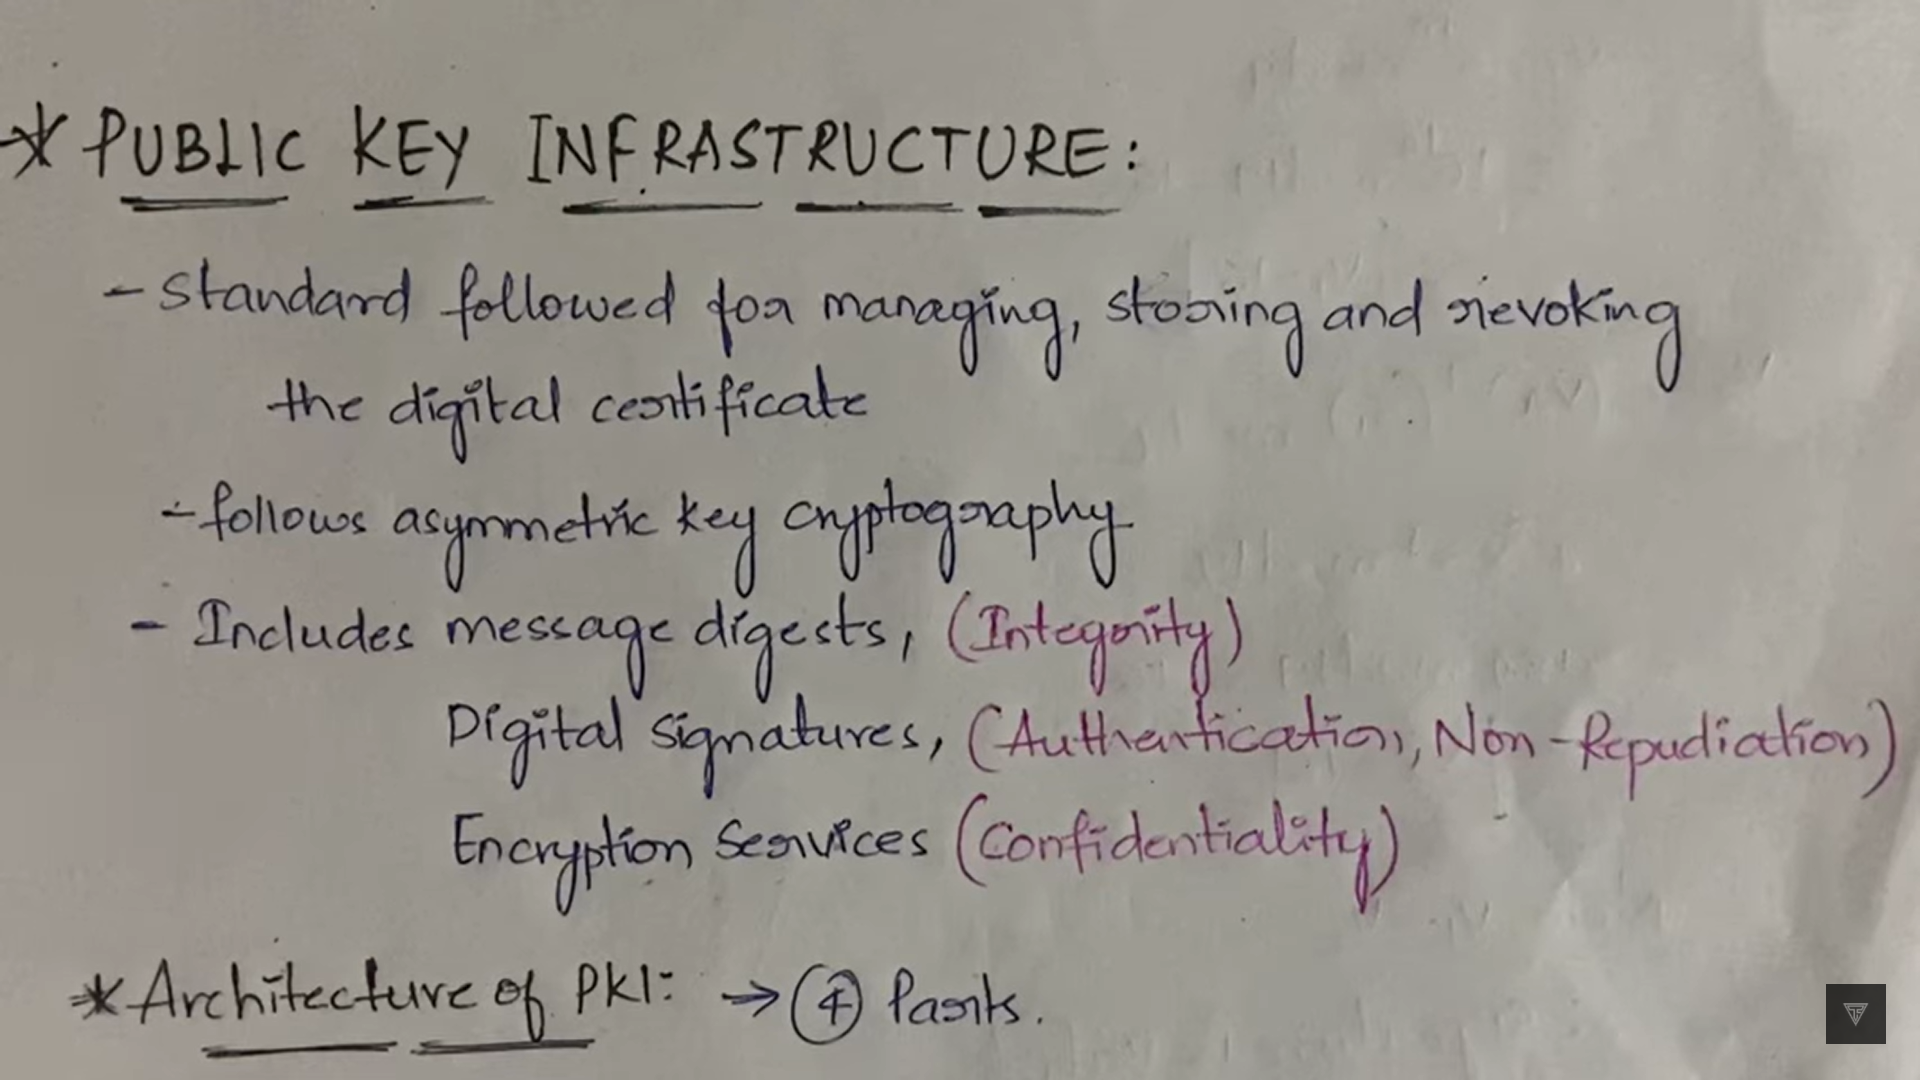 * PUBLIC KEY INFRASTRUCTURE:
- Standard followed for managing, storing and revoking
the digital certificate
- follows asymmetric key cryptography
- Includes message digests, (Integrity)
Digital signatures, (Authentication, Non-Repudiation)
Encryption Services (Confidentiality)
* Architecture of PKI: → ④ Parts.